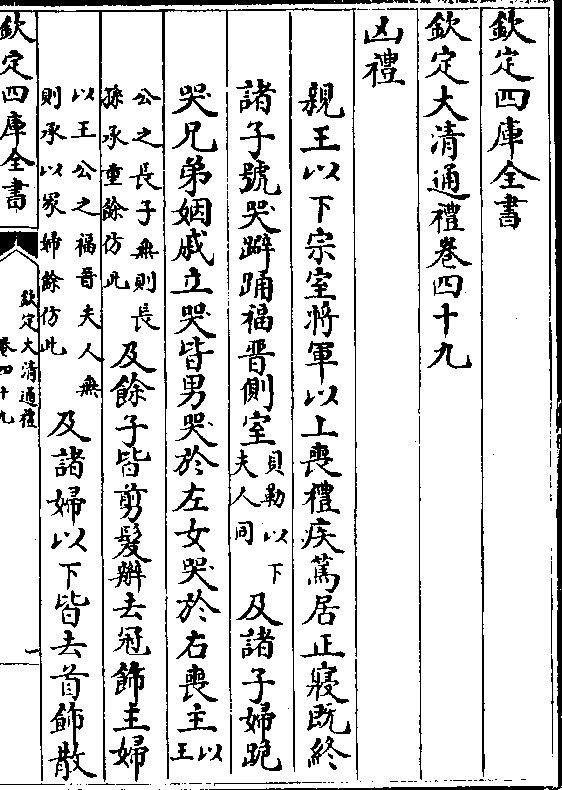 欽定四庫全書
欽定大清通禮卷四十九
凶禮
親王以下宗室將軍以上喪禮疾篤居正寢既終
諸子號哭躃踊福晉側室貝勒以下夫人同及諸子婦跪
哭兄弟姻戚立哭皆男哭於左女哭於右喪主以王
公之長子無則長孫承重餘仿此及餘子皆剪髮辮去冠飾主婦
以王公之福晉夫人無則承以冢婦餘仿此及諸婦以下皆去首飾散
欽定四庫全書
欽定大清通禮
卷四十九
一